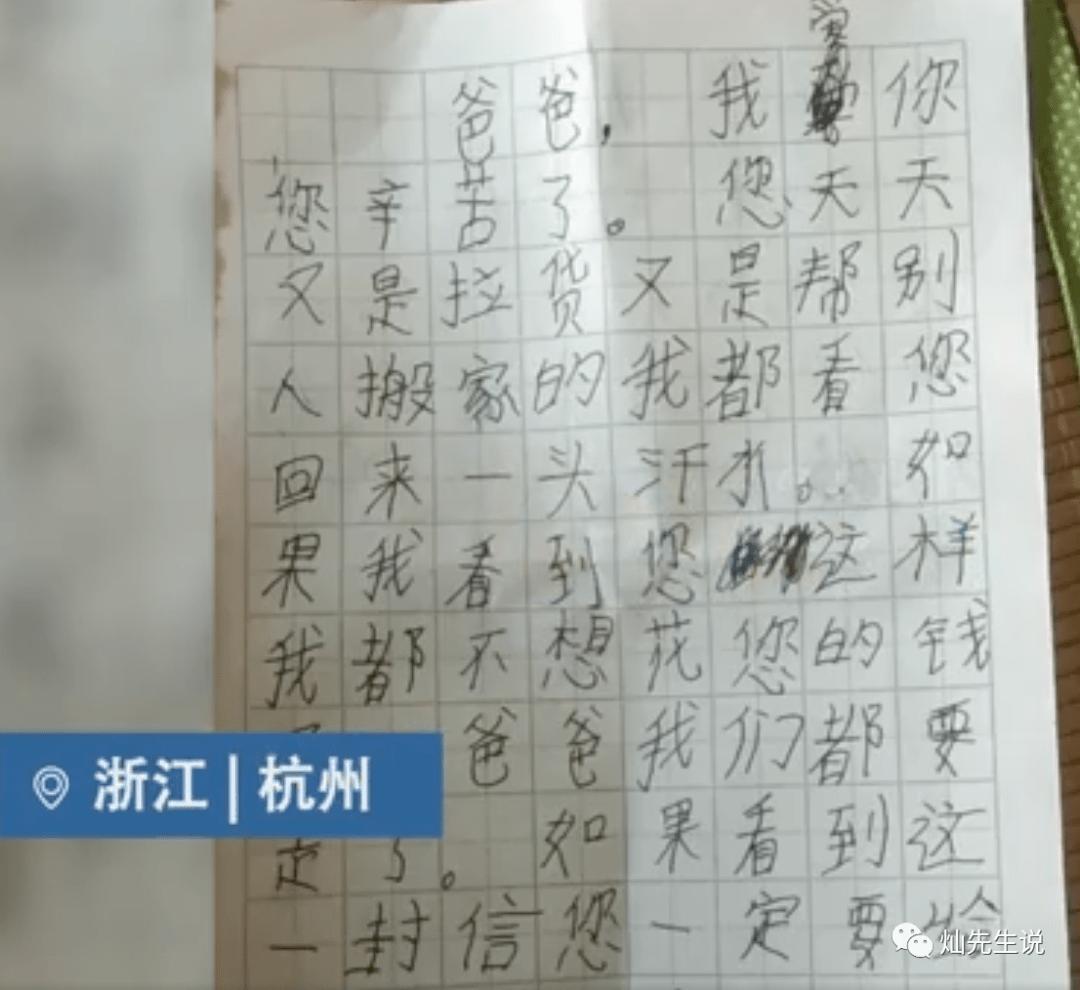 爸爸,我家你
您辛苦了。您天天
又是拉货又是帮别
人搬家的我都看您
回来一头汗水。如
果我看到您这样
我都不想花您的钱
爸爸我们都要
走了。如果看到这
一封信您一定要给
浙江|杭州
灿先生说